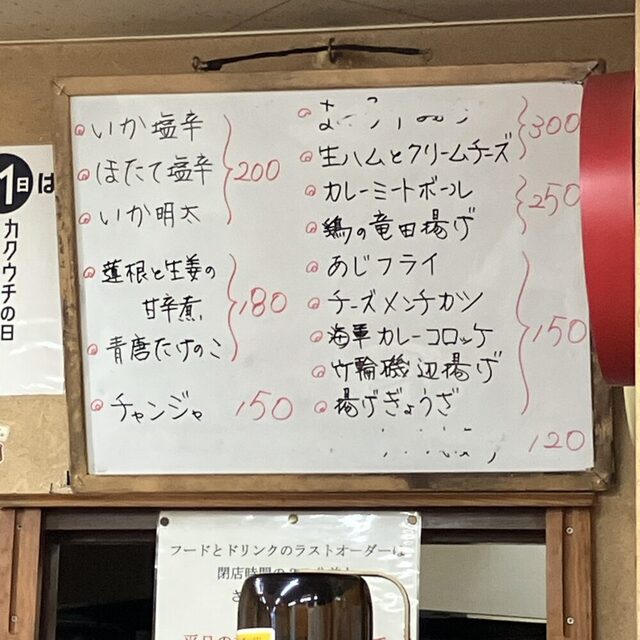 いか塩辛
ほたて塩辛
いか明太
200
蓮根と生姜の
甘辛煮
青唐たけのこ
180
チャンジャ 150
300
生ハムとクリームチーズ
カレーミートボール
鶏の竜田揚げ
250
あじフライ
チーズメンチカツ
海軍カレーコロッケ
竹輪磯辺揚げ
揚げぎょうざ
150
120
1日は
カクウチの日
フードとドリンクのラストオーダーは
閉店時間の